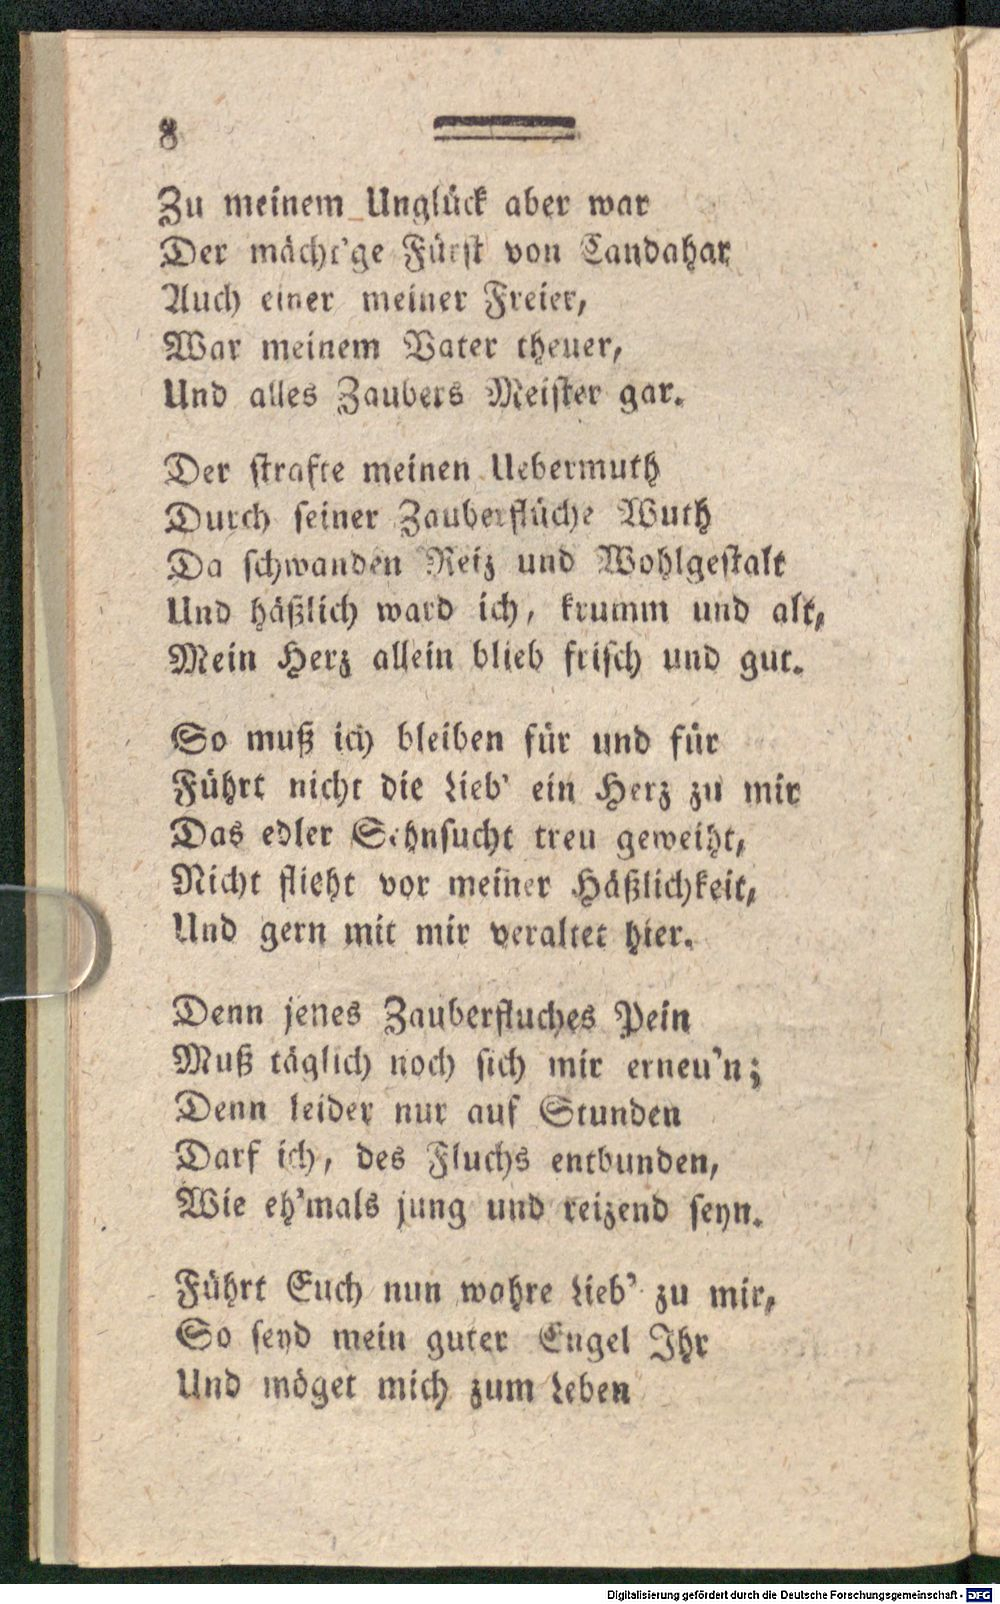 8
Zu meinem Unglück aber war
Der mächt'ge Fürst von Candahar
Auch einer meiner Freier,
War meinem Vater theuer,
Und alles Zaubers Meister gar.
Der strafte meinen Uebermuth
Durch seiner Zauberflüche Wuth
Da schwanden Reiz und Wohlgestalt
Und häßlich ward ich, krumm und alt,
Mein Herz allein blieb frisch und gut.
So muß ich bleiben für und für
Führt nicht die Lieb' ein Herz zu mir
Das edler Sehnsucht treu geweiht,
Nicht flieht vor meiner Häßlichkeit,
Und gern mit mir veraltet hier.
Denn jenes Zauberfluches Pein
Muß täglich noch sich mir erneu'n;
Denn leider nur auf Stunden
Darf ich, des Fluchs entbunden,
Wie eh'mals jung und reizend seyn.
Führt Euch nun wahre Lieb' zu mir,
So seyd mein guter Engel Ihr
Und möget mich zum Leben
Digitalisierung gefördert durch die Deutsche Forschungsgemeinschaft - DFG